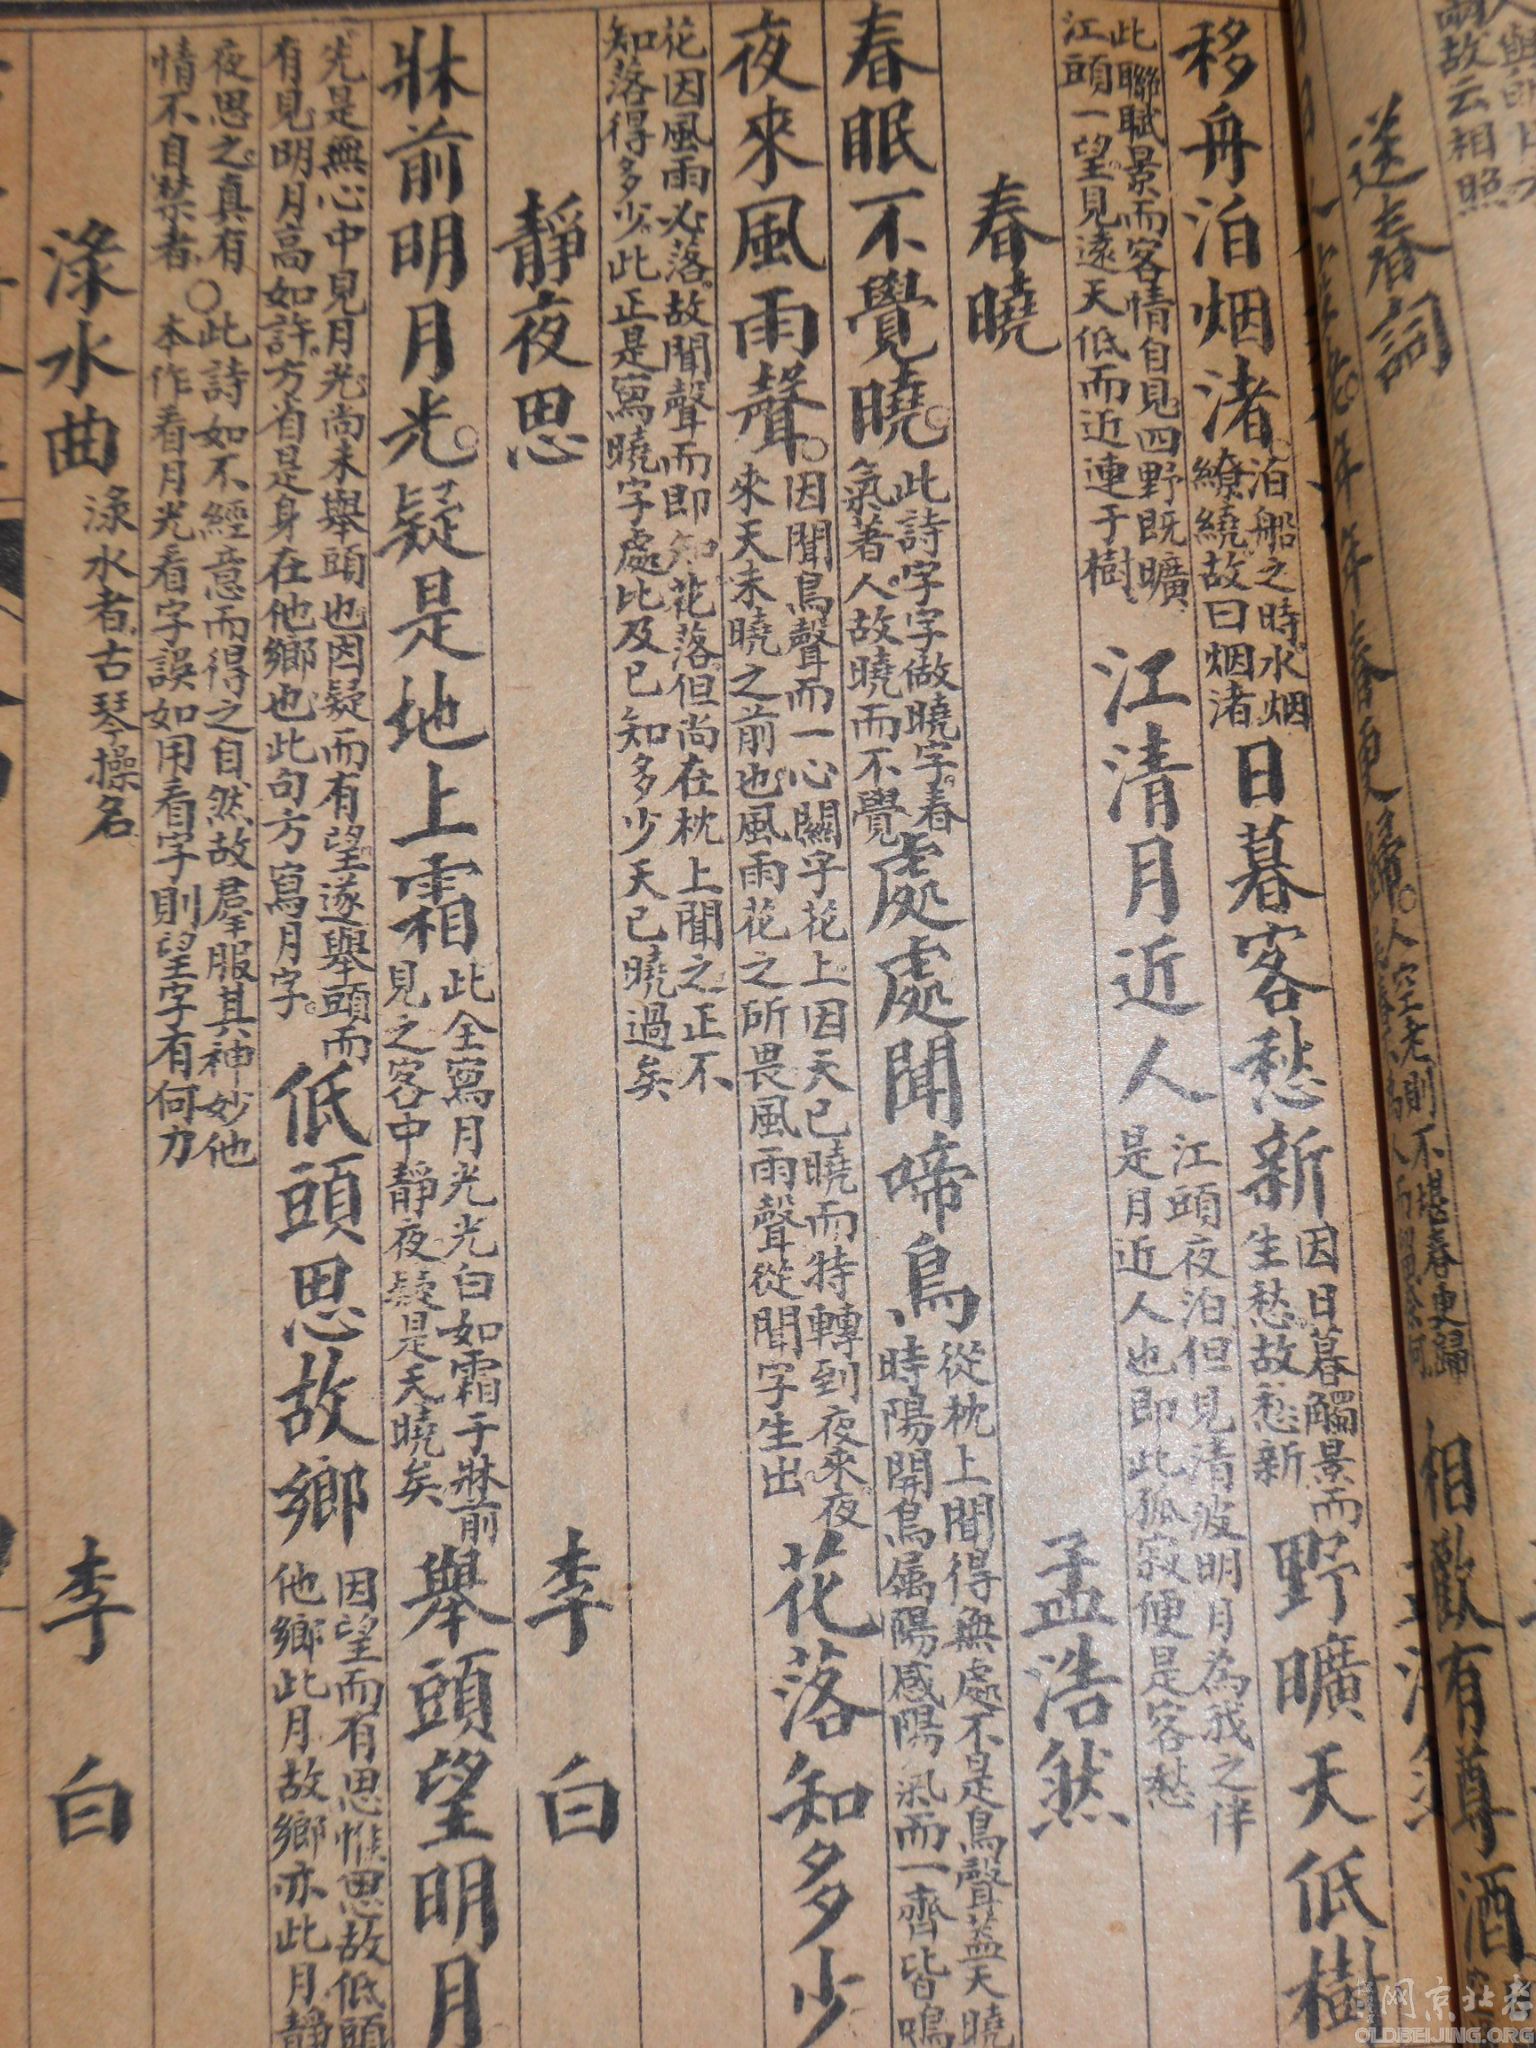 送春詞
相歡有尊酒
移舟泊烟渚。泊船之時。水烟
繚繞故曰烟渚
日暮客愁新因日暮觸景而
生愁。故愁新
野曠天低樹
此聯賦景而客情自見。四野既曠
江頭一望。見遠天低而近連于樹
江清月近人江頭夜泊。但見清波明月為我之伴
是月近人也即此孤寂便是客愁
春曉
孟浩然
春眠不覺曉。此詩字字做曉字。春
氣著人。故曉而不覺
處處聞啼鳥從枕上聞得無處不是鳥聲蓋天曉
時陽開鳥属陽感陽氣而一齊皆鳴
夜來風雨聲。因聞鳥聲而一心關字花上。因天已曉而特轉到夜來。夜
來天未曉之前也。風雨花之所畏風雨聲從聞字生出
花落知多少
花因風雨必落。故聞聲而即知花落。但尚在枕上聞之。正不
知落得多少。此正是寫曉字處比及已知多少天已曉過矣
靜夜思
李白
牀前明月光。疑是地上霜此全寫月光光白如霜于牀前
見之客中靜夜疑是天曉矣
舉頭望明月
先是無心中見月光。尚未舉頭也。因疑而有望。遂舉頭而
有見明月高如許。方省是身在他鄉也。此句方寫月字。
低頭思故鄉因望而有思惟思故低頭
他鄉此月故鄉亦此月靜
夜思之真有
情不自禁者。
○此詩如不經意而得之自然故羣服其神妙他
本作看月光看字誤如用看字則望字有何力
淥水曲淥水者。古琴操名
李白
老北京网
OLDBEIJING.ORG